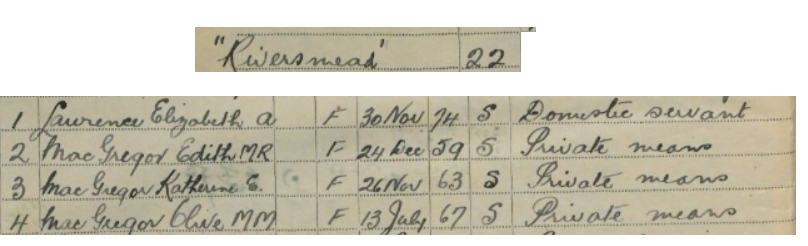 "Riversmead" 22
1 Lawrence Elizabeth A F 30 Nov 74 S Domestic servant
2 MacGregor Edith M R F 24 Dec 59 S Private means
3 MacGregor Katherine E. F 26 Nov 63 S Private means
4 MacGregor Olive M M F 13 July 67 S Private means